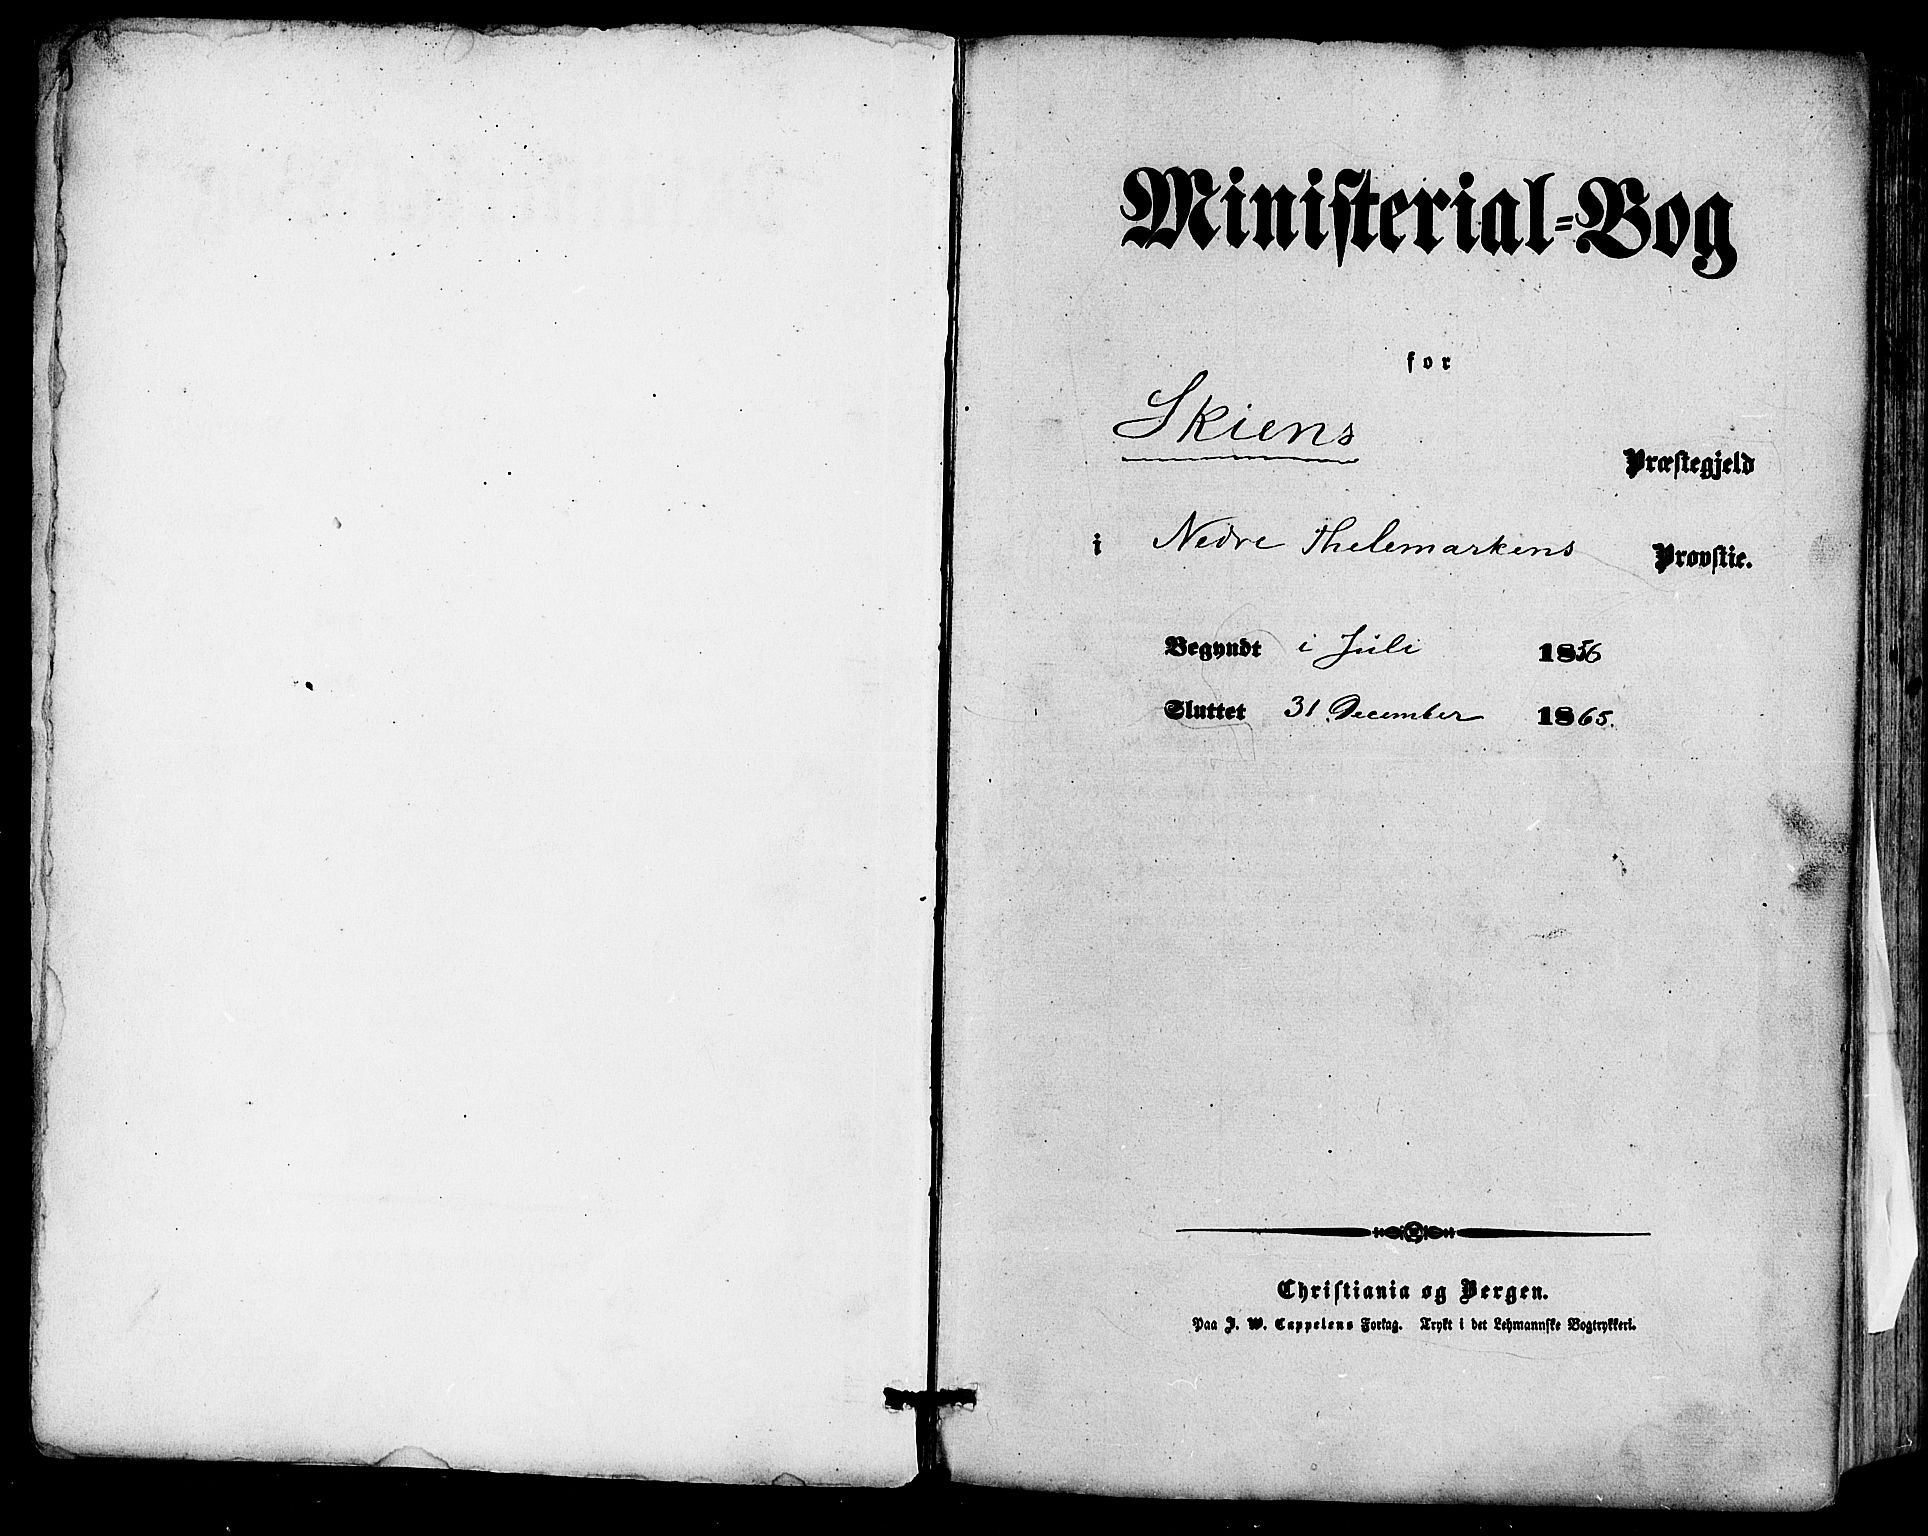 Ministerial-Bog
for
Skiens Præstegjeld
i Nedre Thelemarkens Provstie.
Begyndt i Juli 1856
Sluttet 31 December 1865.
Christiania og Bergen.
Paa J. W. Cappelens Forlag. Trykt i det Lehmannske Bogtrykkeri.